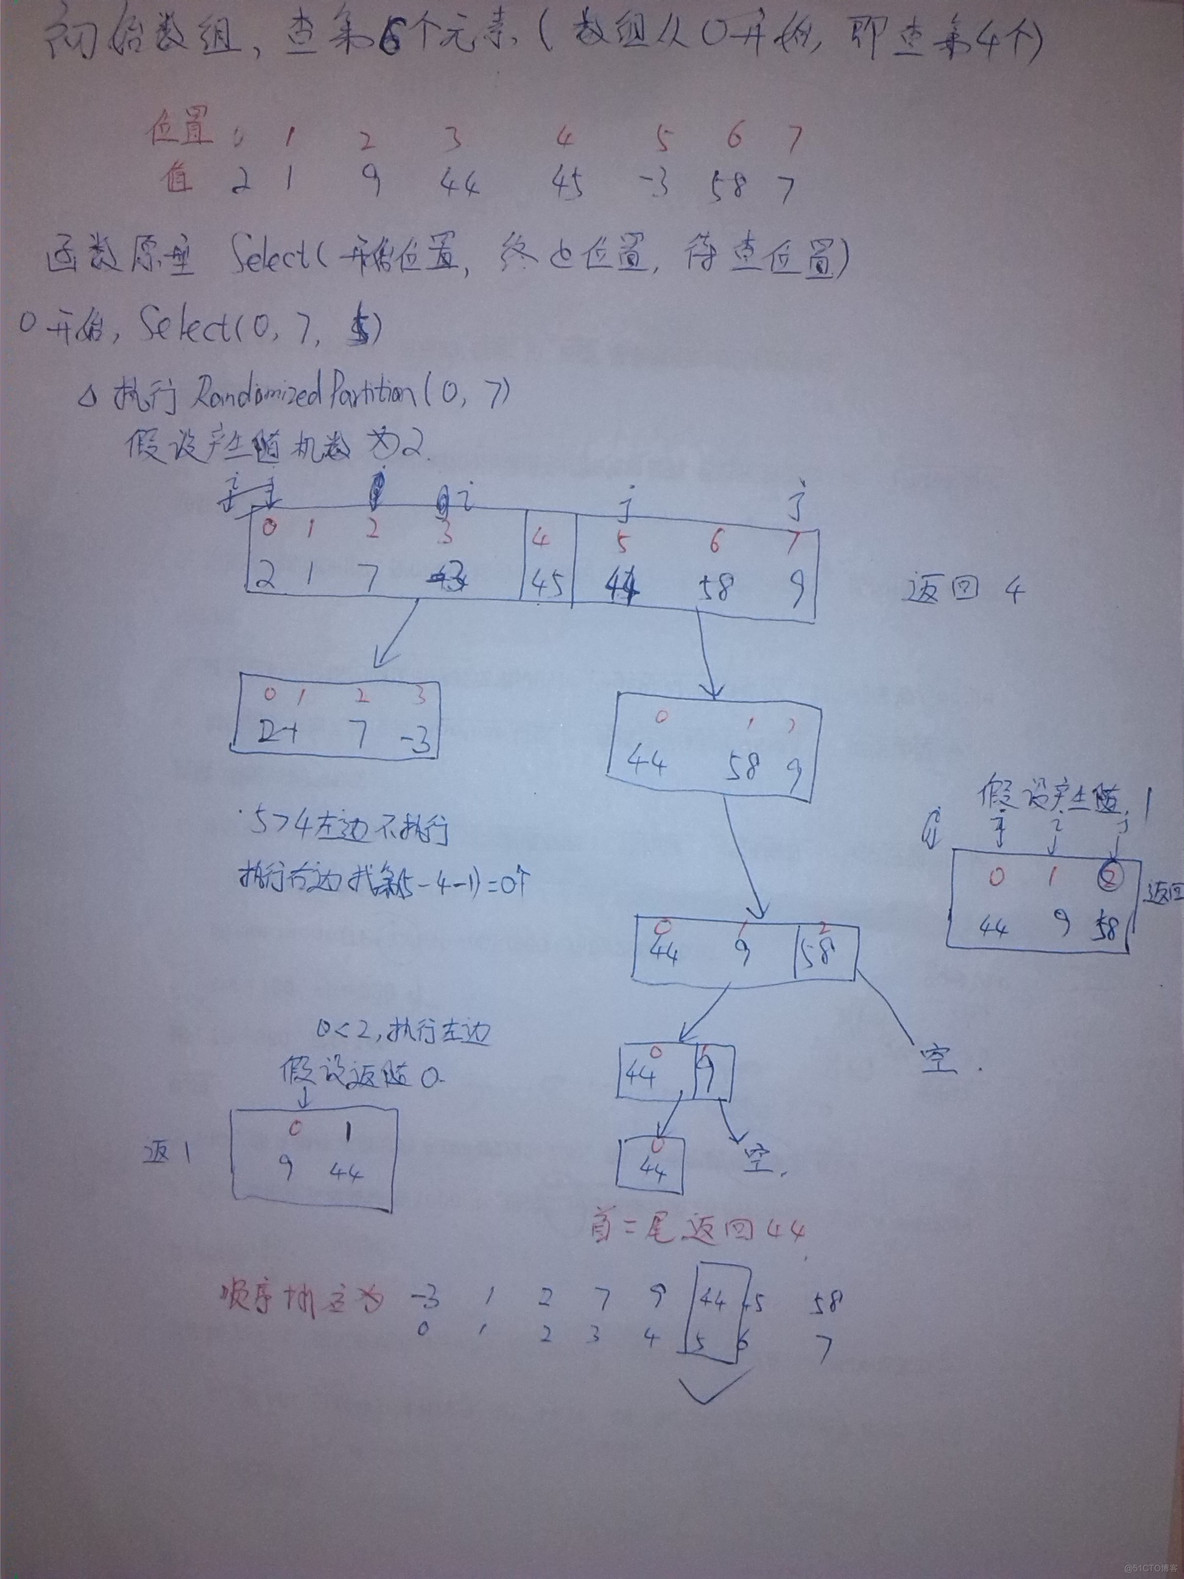 初始数组，查第6个元素（数组从0开始，即查第4个）
位置 0 1 2 3 4 5 6 7
值 2 1 9 44 45 -3 58 7
函数原型 Select(开始位置，终止位置，待查位置)
0开始，Select(0, 7, 5)
△ 执行 RandomizedPartition(0, 7)
假设产生随机数为2.
i j
0 1 2 3 4 5 6 7
2 1 7 45 44 58 9
返回 4
0 1 2 3
2 1 7 -3
0 1 2
44 58 9
5>4左边不执行
执行右边找第(5-4-1)=0个
假设产生随 1
i j
0 1 2
44 9 58
返回
0 1 2
44 9 58
空.
0<2,执行左边
假设返随0.
0 1
9 44
返1
0 1
44 9
0
44
空.
首=尾返回44
顺序排主为 -3 1 2 7 9 44 45 58
0 1 2 3 4 5 6 7
@51CTO博客